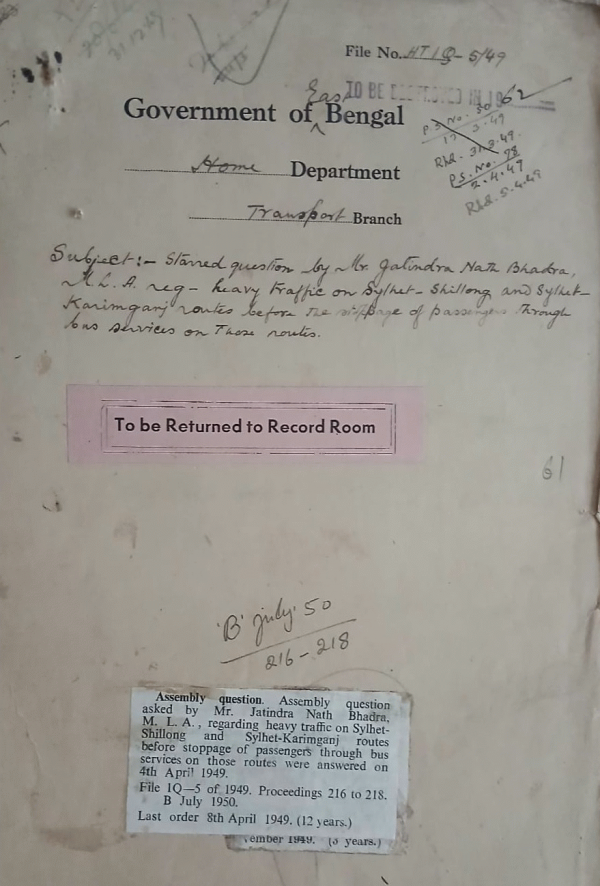 31.12.49
File No. HT 1Q-5/49
TO BE DESTROYED IN 1962
East
Government of ^ Bengal
P.S. No. 30
17.3.49
Rkd. 31.3.49.
P.S. No. 98
2.4.49
Rkd. 5.4.49
Home Department
Transport Branch
Subject:- Starred question by Mr. Jatindra Nath Bhadra,
M.L.A. reg- heavy traffic on Sylhet-Shillong and Sylhet-
Karimganj routes before the stoppage of passengers through
bus services on those routes.
To be Returned to Record Room
61
'B' July '50
216-218
Assembly question. Assembly question
asked by Mr. Jatindra Nath Bhadra,
M. L. A., regarding heavy traffic on Sylhet-
Shillong and Sylhet-Karimganj routes
before stoppage of passengers through bus
services on those routes were answered on
4th April 1949.
File 1Q—5 of 1949. Proceedings 216 to 218.
B July 1950.
Last order 8th April 1949. (12 years.)
ember 1949. years.)